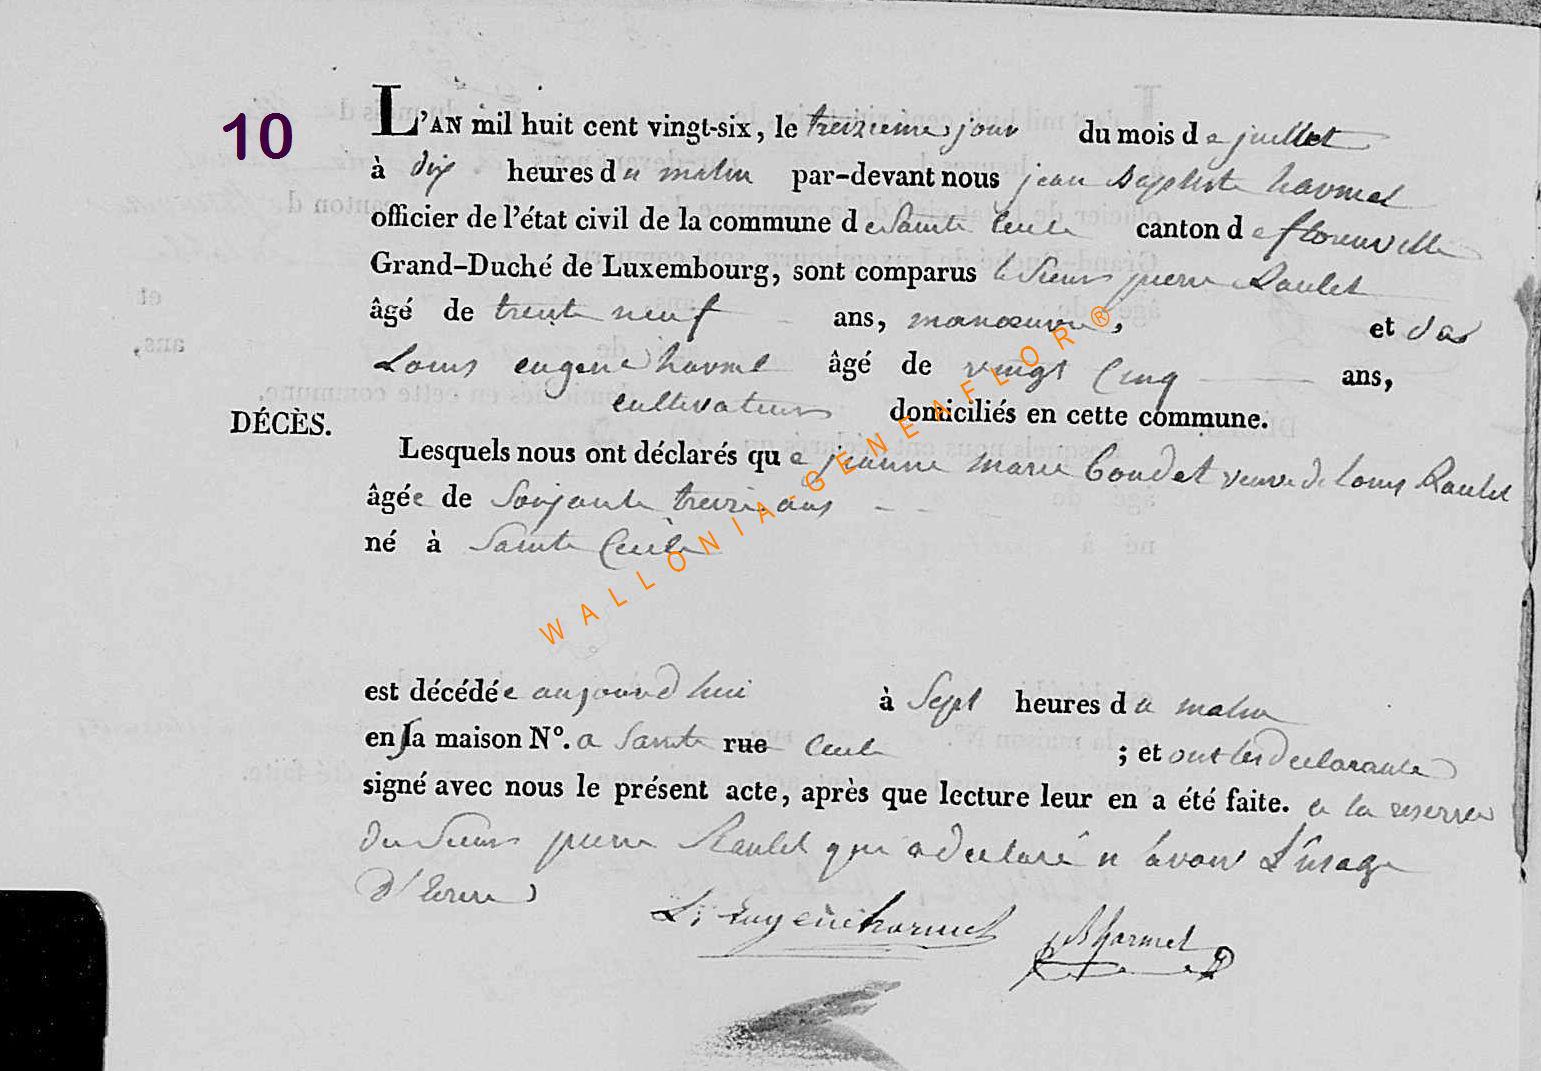 10
L'AN mil huit cent vingt-six, le treizieme jour du mois de juillet
à dix heures du matin par-devant nous jean Baptiste harmel
officier de l'état civil de la commune de Sainte Cecile canton de florenville
Grand-Duché de Luxembourg, sont comparus le Sieur pierre Raulet
âgé de trente neuf ans, manœuvre, et
Louis eugene harmel âgé de vingt Cinq ans,
cultivateurs domiciliés en cette commune.
DÉCÈS.
Lesquels nous ont déclarés que jeanne marie Goudet veuve de louis Raulet
âgée de Soixante treize ans
né à Sainte Cecile
est décédée aujourd hui à Sept heures du matin
en sa maison N°. a Sainte rue Cecile ; et ont les declarants
signé avec nous le présent acte, après que lecture leur en a été faite. a la reserve
du Sieur pierre Raulet qui a declaré n'avoir L'usage
d'Ecrire
L. Eugene harmel JB harmel
WALLONIA-GENEAFLOR®